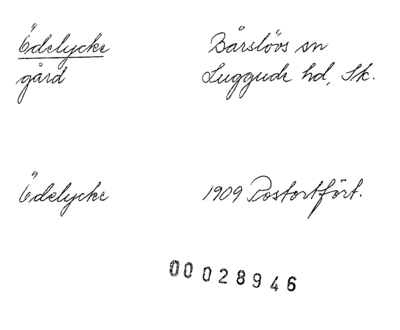 Ödelycke Bårslövs sn
gård Luggude hd, Sk.
Ödelycke 1909 Postortfört.
00028946